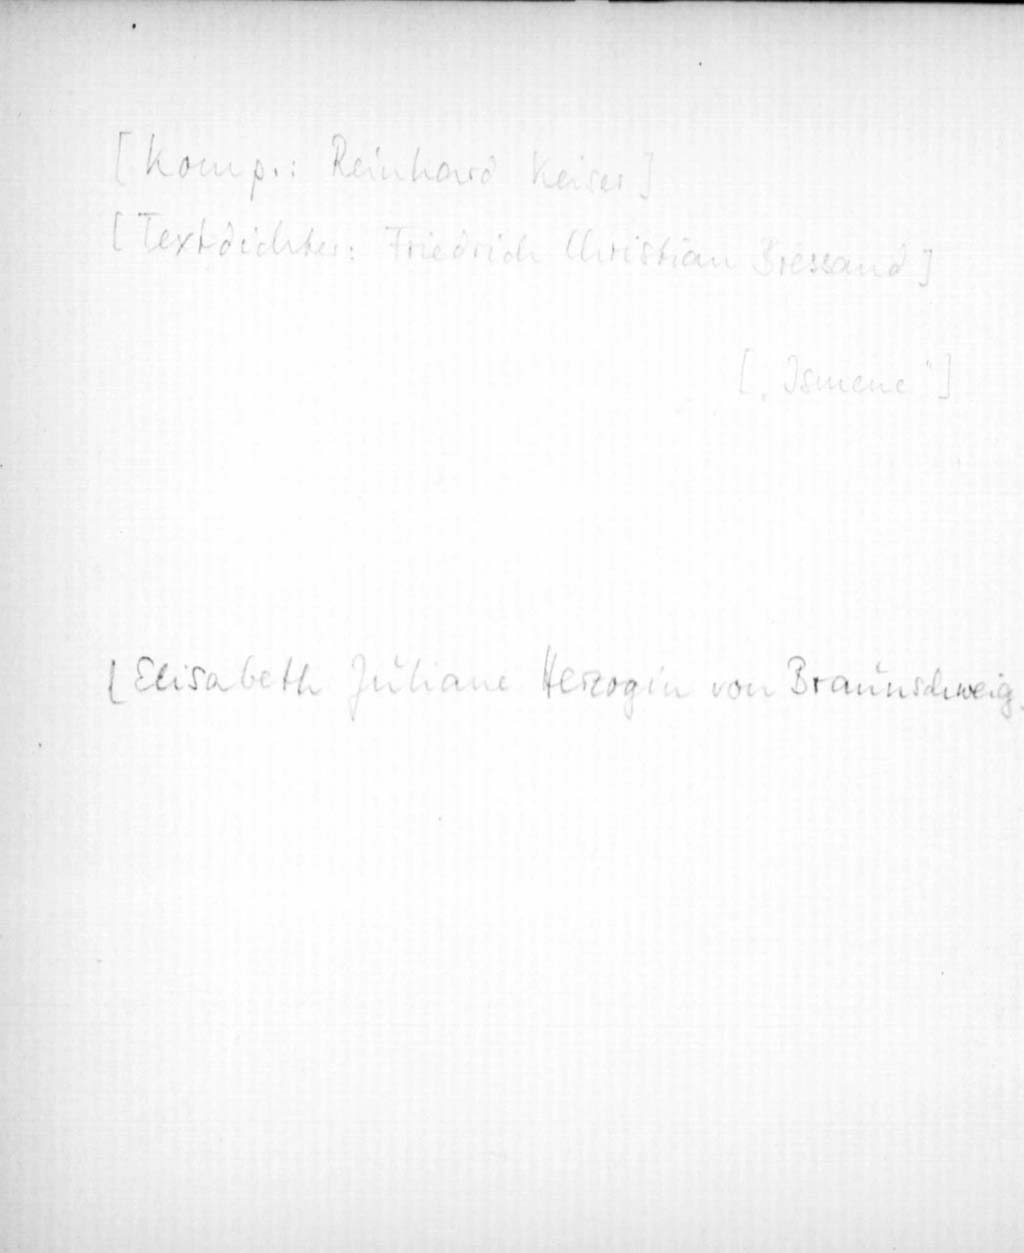 [Komp.: Reinhard Keiser]
[Textdichter: Friedrich Christian Bressand]
[„Ismene"]
[Elisabeth Juliane Herzogin von Braunschweig.